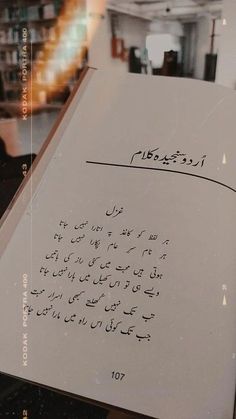 KODAK PORTRA 400
43
KODAK PORTRA 400
اُردو سنجیدہ کلام
غزل
ہر لفظ کو کاغذ پہ اتارا نہیں جاتا
ہر نام سرِ عام پکارا نہیں جاتا
ہوتی ہیں محبت میں کئی راز کی باتیں
ویسے ہی تو اس کھیل میں ہارا نہیں جاتا
تب تک نہیں کھلتے کبھی اسرارِ محبت
جب تک کوئی اس راہ میں مارا نہیں جاتا
107